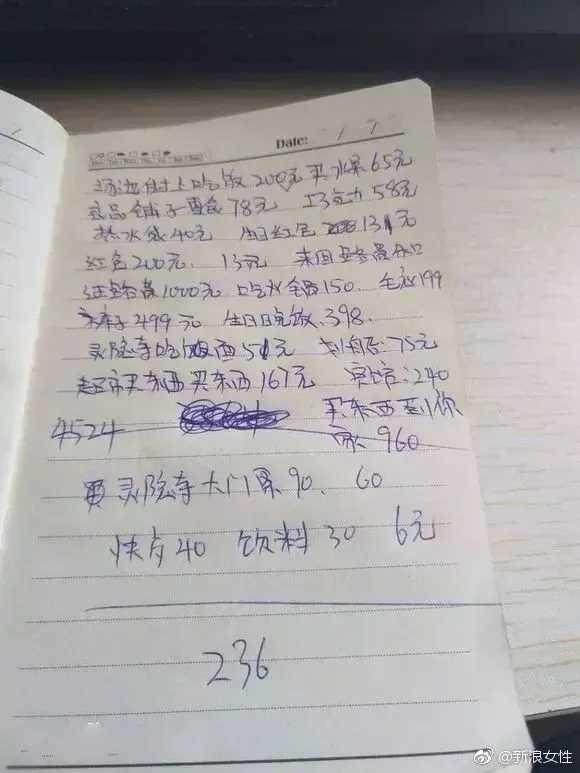 Date: / 7
街上吃饭200元 买水果65元
良品铺子零食78元 巧克力58元
热水袋40元 生日红包 131元
红包200元. 13元 来回
1000元 吃火锅150. 毛衣199
裤子499元 生日吃饭.398.
灵隐寺吃饭 51元 75元
超市买东西 买东西167元 宾馆:240
4524 买东西到你
家 960
灵隐寺大门票90. 60
快大40 饮料30 6元
236
@新浪女性